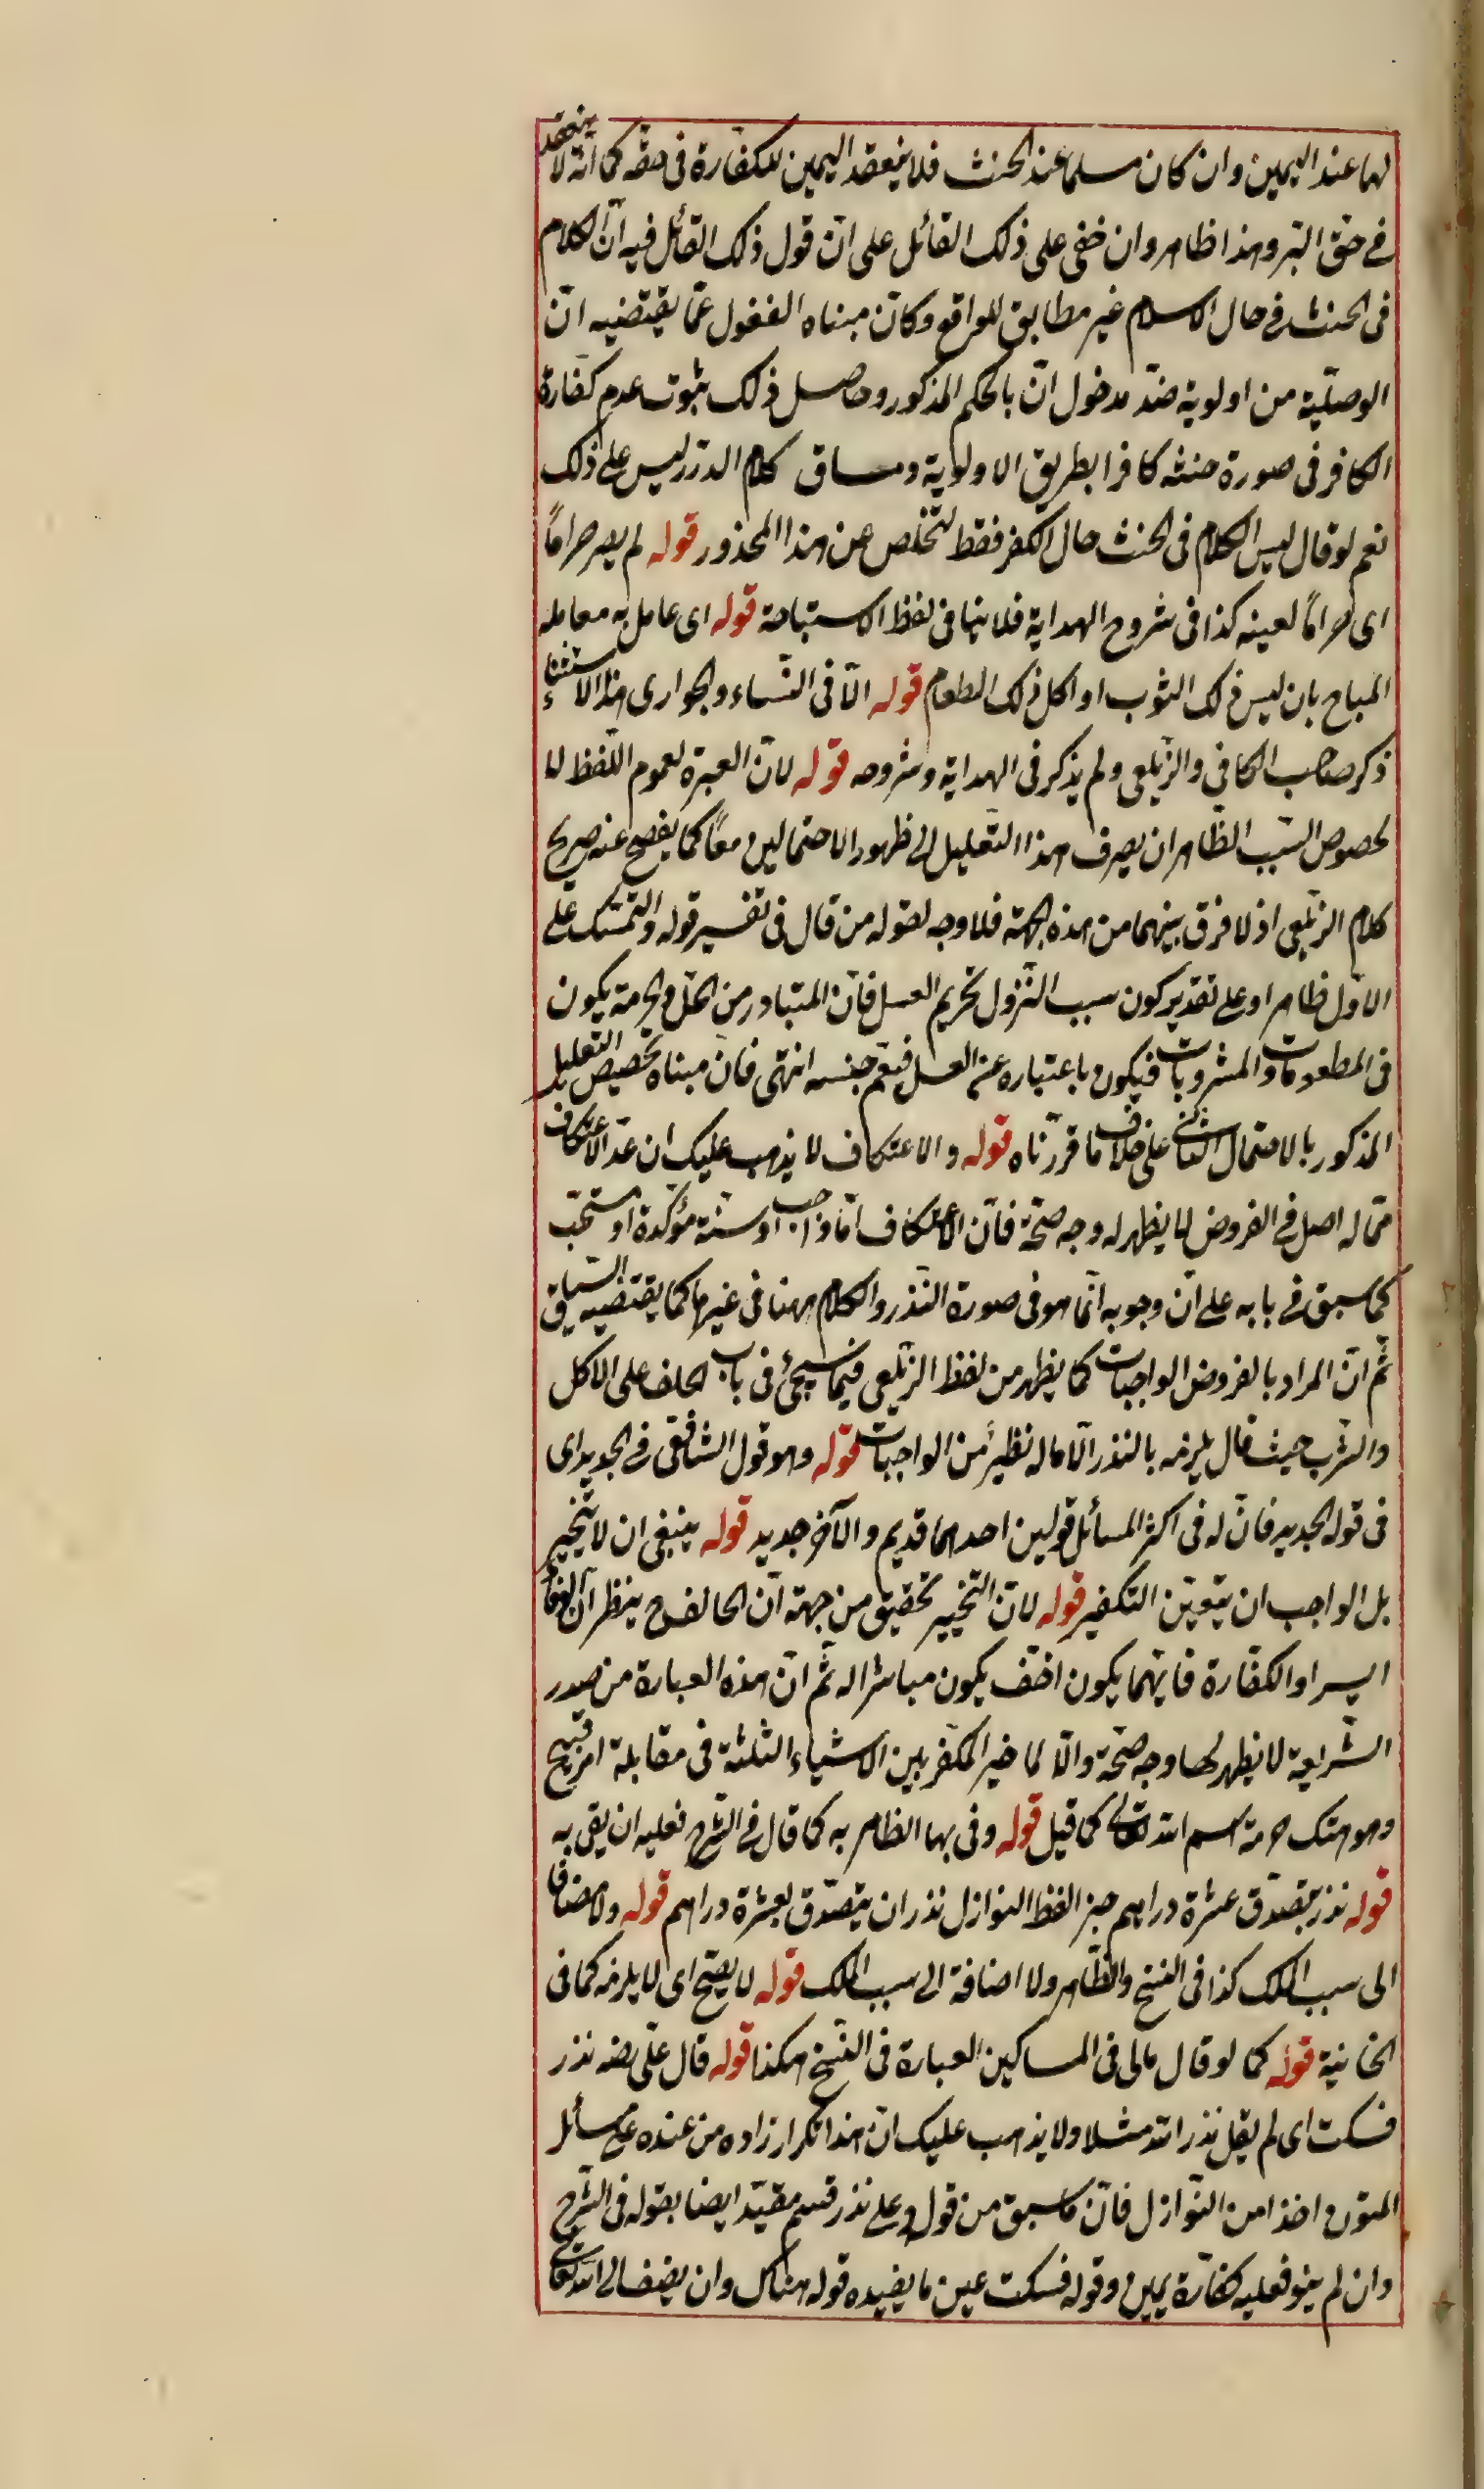 لها عند اليمين وان كان مسلما عند الحنث فلا ينعقد اليمين للكفارة فى حقه كما انه لا ينعقد
فى حق البر وهذا ظاهر وان خفى على ذلك القائل على انّ قول ذلك القائل فيه انّ الكلام
فى الحنث فى حال الاسلام غير مطابق للواقع وكانّ مبناه الغفول عمّا يقتضيه ان
الوصليّة من اولوية ضدّ مدخول انّ بالحكم المذكور وحاصل ذلك ثبوت عدم كفارة
الكافر فى صورة حنثه كافرا بطريق الاولوية ومساق كلام الدرر ليس على ذلك
نعم لو قال ليس الكلام فى الحنث حال الكفر فقط لتخلص عن هذا المحذور قوله لم يصر حراماً
اى حراماً لعينه كذا فى شروح الهداية فلا ينافى لفظ الاستباحة قوله اى عامل به معاملة
المباح بان لبس ذلك الثوب او اكل ذلك الطعام قوله الّا فى النّساء والجوارى هذا الاستثناء
ذكر صاحب الكافى والزيلعى ولم يذكر فى الهداية وشروحه قوله لانّ العبرة لعموم اللّفظ لا
لخصوص السّبب الظّاهر ان يصرف هذا التّعليل الى ظهور الاحتمالين معاً كما يفصح عنه صريح
كلام الزيلعى اذ لا فرق بينهما من هذه الجهة فلا وجه لقوله من قال فى تفسير قوله والتمسّك على
الاوّل ظاهر او على تقدير كون سبب النّزول تحريم العسل فانّ المتبادر من الحلّ والحرمة يكون
فى المطعومات والمشروبات فيكون باعتباره عن العسل فيعمّ جنسه انتهى فانّ مبناه تخصيص التعليل
المذكور بالاحتمال الثانى على خلاف ما قررّناه قوله والاعتكاف لا يذهب عليك ان عدّ الاعتكاف
ممّا له اصل فى الفروض لا يظهر له وجه صحّة فانّ الاعتكاف امّا واجب او سنّة مؤكدة او مستحبّ
كما سبق فى بابه على انّ وجوبه انّما هو فى صورة النّذر والكلام ههنا فى غيرها كما يقتضيه السّياق
ثمّ انّ المراد بالفروض الواجبات كما يظهر من لفظ الزيلعى فيما سيجئ فى باب الحلف على الاكل
والشرب حيث قال يلزمه بالنذر الّا ما له نظير من الواجبات قوله وهو قول الشافعى فى الجديد اى
فى قوله الجديد فانّ له فى اكثر المسائل قولين احدهما قديم والآخر جديد قوله ينبغى ان لا يتخيّر
بل الواجب ان يتعيّن التكفير قوله لانّ التخيير تحقيق من جهة انّ الحالف ح ينظر انّ الوفاء
ايسر او الكفّارة فايّهما يكون اخفّ يكون مباشرا له ثمّ انّ هذه العبارة من صدر
الشّريعة لا يظهر لها وجه صحّة والّا لما خير المكفّر بين الاشياء الثلثة فى مقابلة امر قبيح
وهو هتك حرمة اسم الله تعالى كما قيل قوله وفى بها الظاهر به كما قال فى الشّرح فعليه ان يفى به
قوله نذر بتصدّق عشرة دراهم خبز لفظ النوازل نذر ان يتصدّق بعشرة دراهم قوله ولا مضافا
الى سبب الملك كذا فى النسخ والظّاهر ولا اضافة الى سبب الملك قوله لا يصّح اى لا يلزمه كما فى
الخانية قوله كما لو قال مالى فى المساكين العبارة فى النّسخ هكذا قوله قال علّى نذر
فسكت اى لم يقل نذر الله مثلا ولا يذهب عليك انّ هذا تكرار زاده من عنده على مسائل
المتون واخذا من النّوازل فانّ ما سبق من قوله وعلى نذر قسم مقيّد ايضا بقوله فى الشّرح
وان لم ينو فعليه كفّارة يمين وقوله فسكت عين ما يفيده قوله هناك وان لم يضف الى الله تعالى